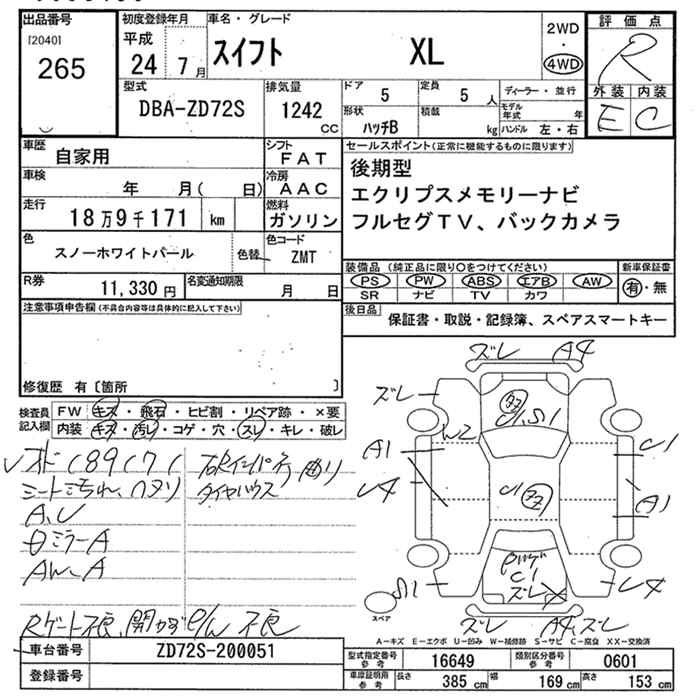 出品番号
[2040]
265
初度登録年月
平成
24 7 月
車名・グレード
スイフト XL
2WD
・
4WD
評価点
R
外装 内装
E C
型式
DBA-ZD72S
排気量
1242
cc
ドア
5
定員
5 人
ディーラー・並行
形状
ハッチB
積載
kg
モデル年式
年
ハンドル 左・右
車歴
自家用
シフト
FAT
車検
年 月( 日)
冷房
AAC
走行
18万9千171 km
燃料
ガソリン
色
スノーホワイトパール
色替
色コード
ZMT
R券
11,330 円
名変通知期限
月 日
セールスポイント(正常に機能するものに限ります)
後期型
エクリプスメモリーナビ
フルセグTV、バックカメラ
装備品 (純正品に限り○をつけてください)
PS PW ABS エアB AW
SR ナビ TV カワ
新車保証書
有・無
後日品
保証書・取説・記録簿、スペアスマートキー
注意事項申告欄(不具合内容等は具体的に記入して下さい)
修復歴 有〔箇所 〕
検査員記入欄
FW キズ・飛石・ヒビ割・リペア跡・×要
内装 キズ・汚レ・コゲ・穴・スレ・キレ・破レ
189171
シートよごれ、ヘタリ
A、U
Bミラー A
AW、A
Rゲート不良、開かず P/W 不良
ズレ A4
ズレ
C1,S1
A1
W2
C1
U4
C1
A1
C1
ズレ
S1
U4
ズレ A4,ズレ
スペア
A−キズ E−エクボ U−凹み W−補修跡 S−サビ C−腐食 XX−交換済
車台番号
ZD72S-200051
登録番号
型式指定番号
参考
16649
類別区分番号
参考
0601
車庫証明用
参考
長さ 385 cm
幅 169 cm
高さ 153 cm